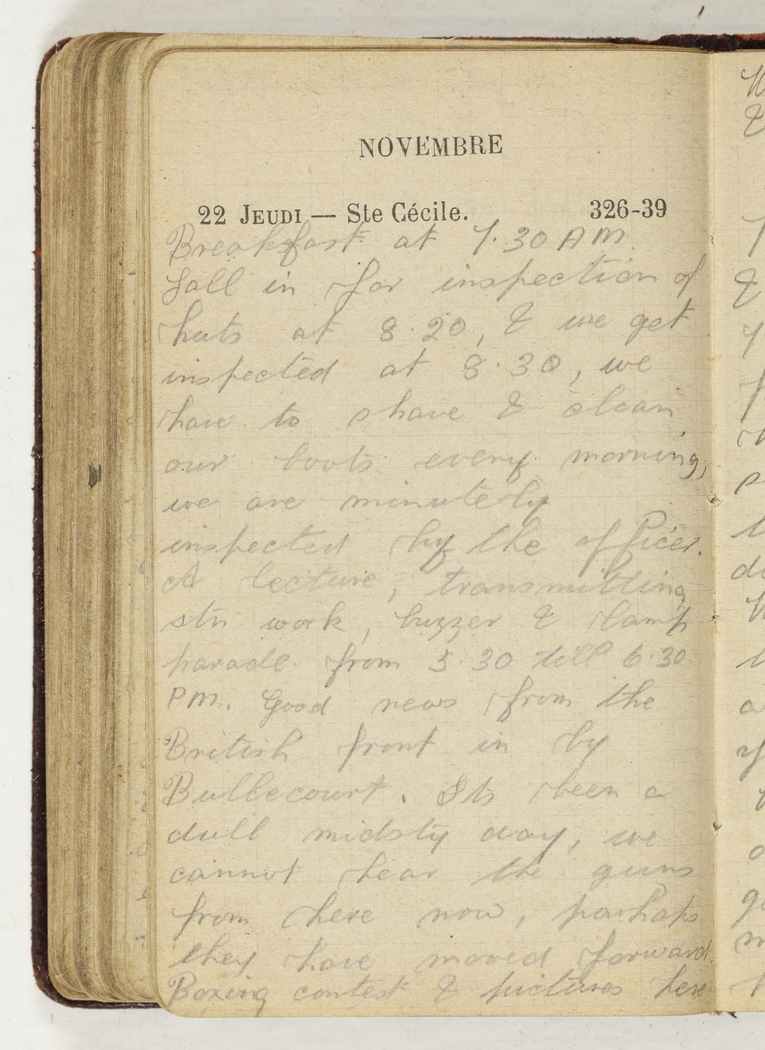 NOVEMBRE
22 JEUDI — Ste Cécile. 326-39
Breakfast at 7.30 AM.
Fall in for inspection of
huts at 8.20, & we get
inspected at 8.30, we
have to shave & clean
our boots every morning,
we are minutely
inspected by the officer.
A lecture, transmitting
stn work, buzzer & lamp
parade from 5.30 till 6.30
PM. Good news from the
British front in by
Bullecourt. Its been a
dull midsty day, we
cannot hear the guns
from here now, parhaps
they have moved forward.
Boxing contest & pictures here